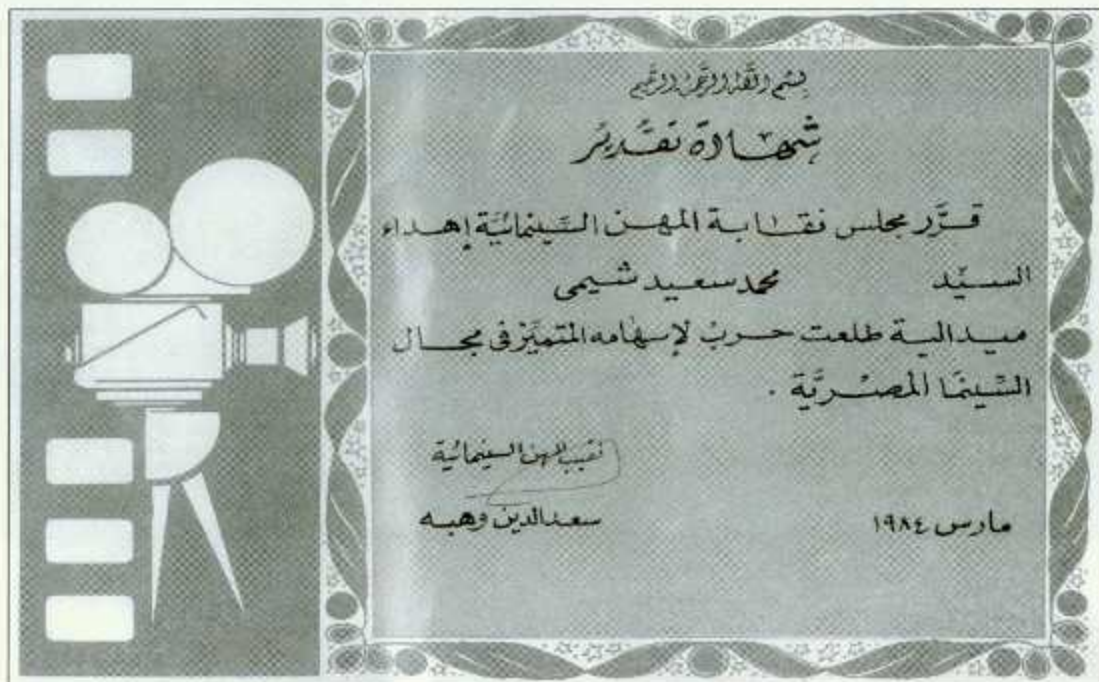 بسم الله الرحمن الرحيم
شهادة تقدير
قرَّر مجلس نقابة المهن السِّينمائيَّة إهداء
السيِّد محمد سعيد شيمى
ميدالية طلعت حرب لإسهامه المتميِّز فى مجال
السِّينمَا المصْريَّة .
نقيب المهن السينمائية
سعد الدين وهبه
مارس ١٩٨٤